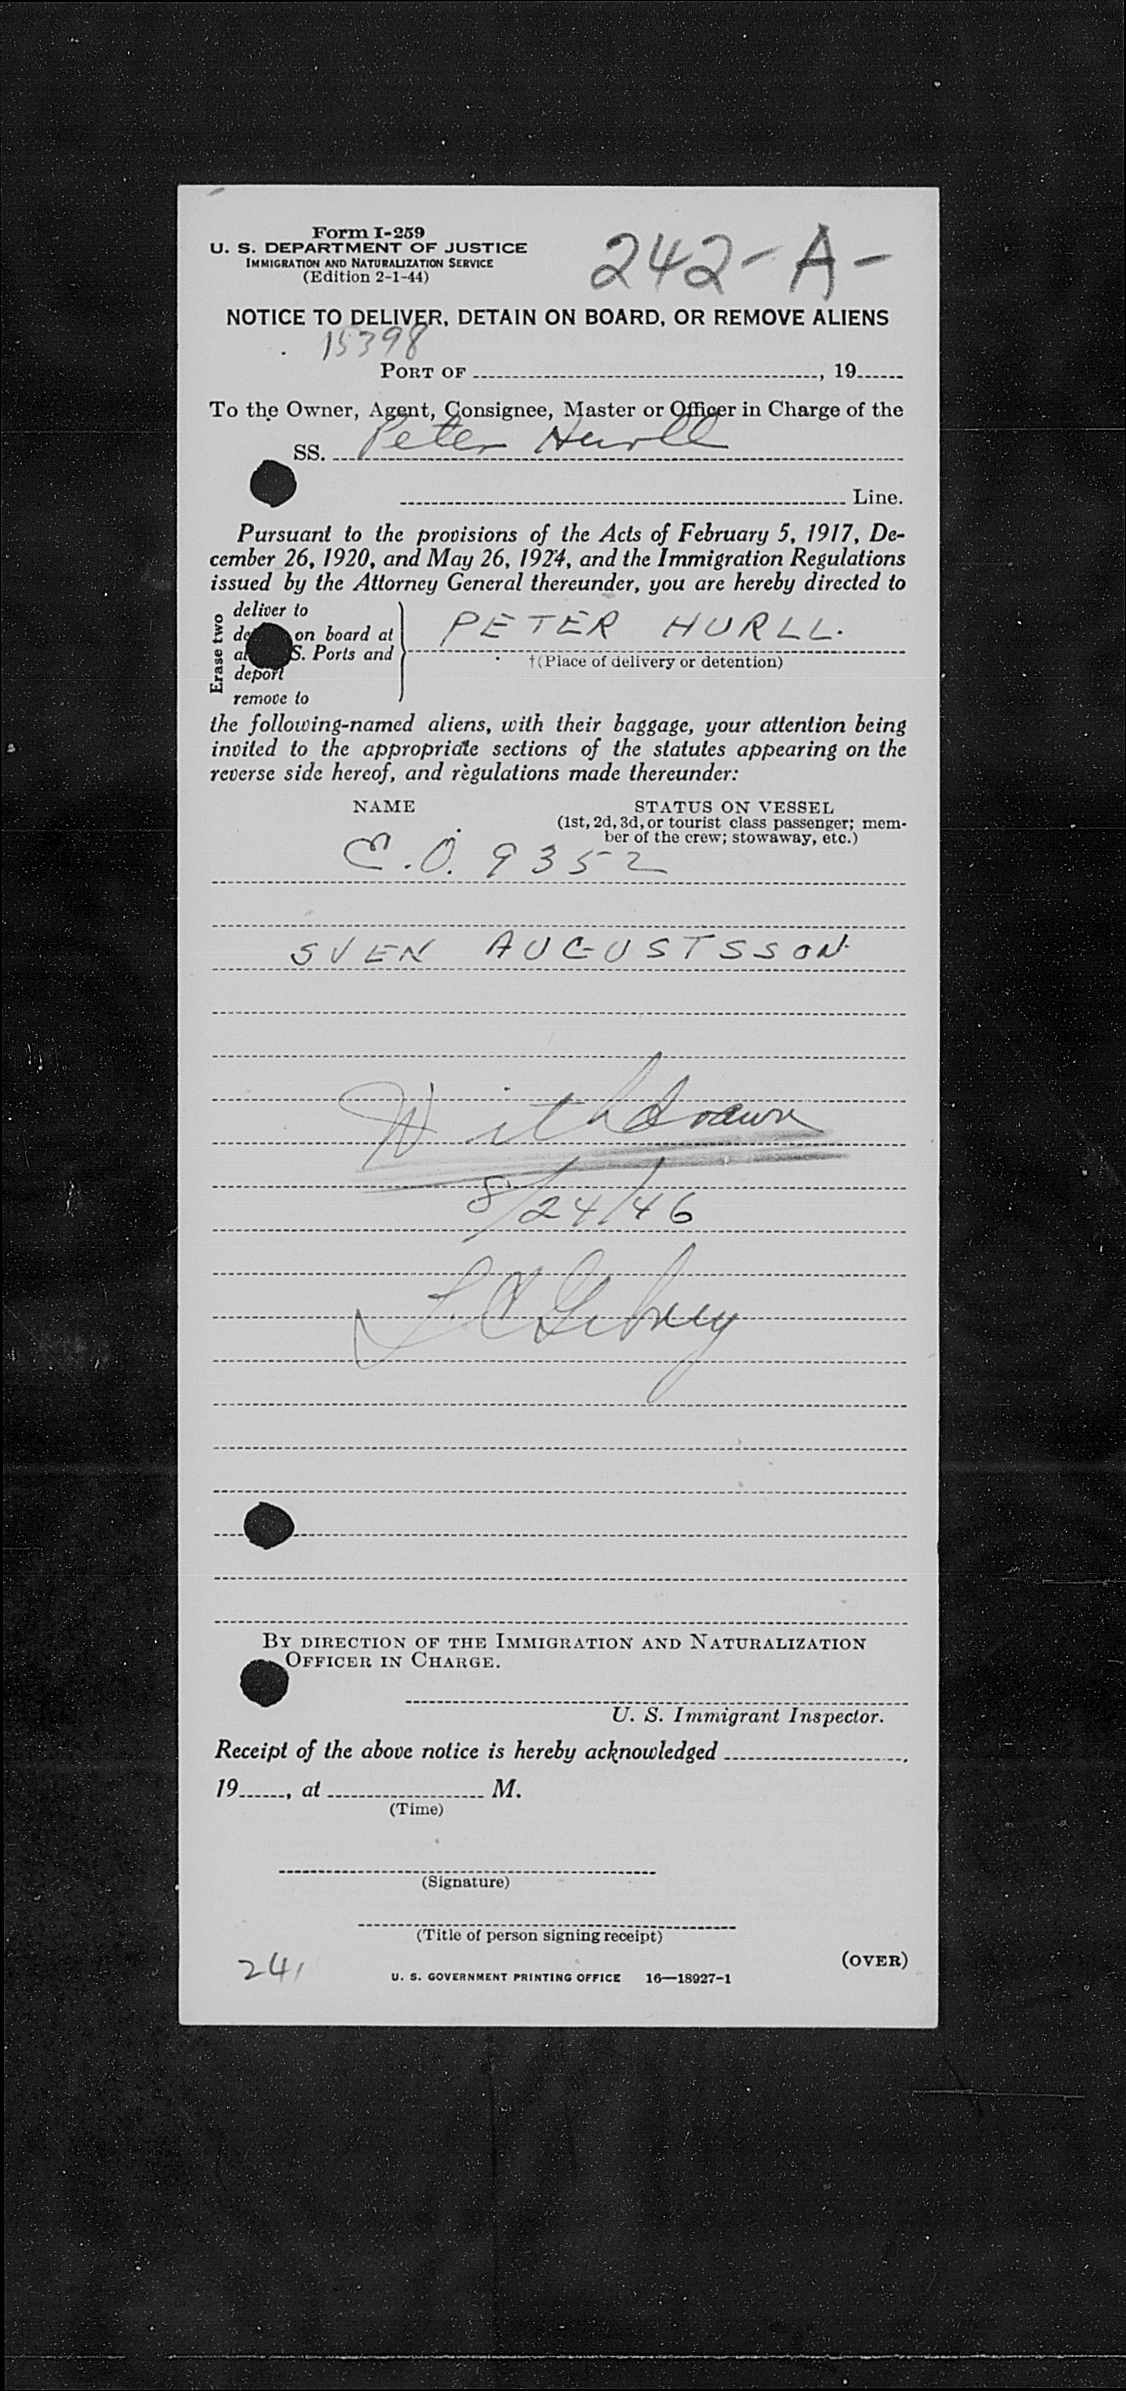 Form I-259
U. S. DEPARTMENT OF JUSTICE
IMMIGRATION AND NATURALIZATION SERVICE
(Edition 2-1-44)
242-A-
NOTICE TO DELIVER, DETAIN ON BOARD, OR REMOVE ALIENS
15398
PORT OF , 19
To the Owner, Agent, Consignee, Master or Officer in Charge of the
SS. Peter Hurll
Line.
Pursuant to the provisions of the Acts of February 5, 1917, De-
cember 26, 1920, and May 26, 1924, and the Immigration Regulations
issued by the Attorney General thereunder, you are hereby directed to
Erase two
deliver to
on board at
S. Ports and
deport
remove to
PETER HURLL.
†(Place of delivery or detention)
the following-named aliens, with their baggage, your attention being
invited to the appropriate sections of the statutes appearing on the
reverse side hereof, and regulations made thereunder:
NAME STATUS ON VESSEL
(1st, 2d, 3d, or tourist class passenger; mem-
ber of the crew; stowaway, etc.)
E.O. 9352
SVEN AUGUSTSSON
Withdrawn
8/24/46
BY DIRECTION OF THE IMMIGRATION AND NATURALIZATION
OFFICER IN CHARGE.
U. S. Immigrant Inspector.
Receipt of the above notice is hereby acknowledged ,
19 , at M.
(Time)
(Signature)
(Title of person signing receipt)
241
(OVER)
U. S. GOVERNMENT PRINTING OFFICE 16—18927-1